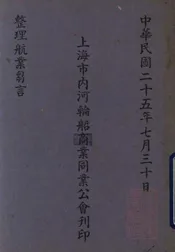 中華民國二十五年七月三十日
上海市內河輪船商業同業公會刊印
整理航業芻言